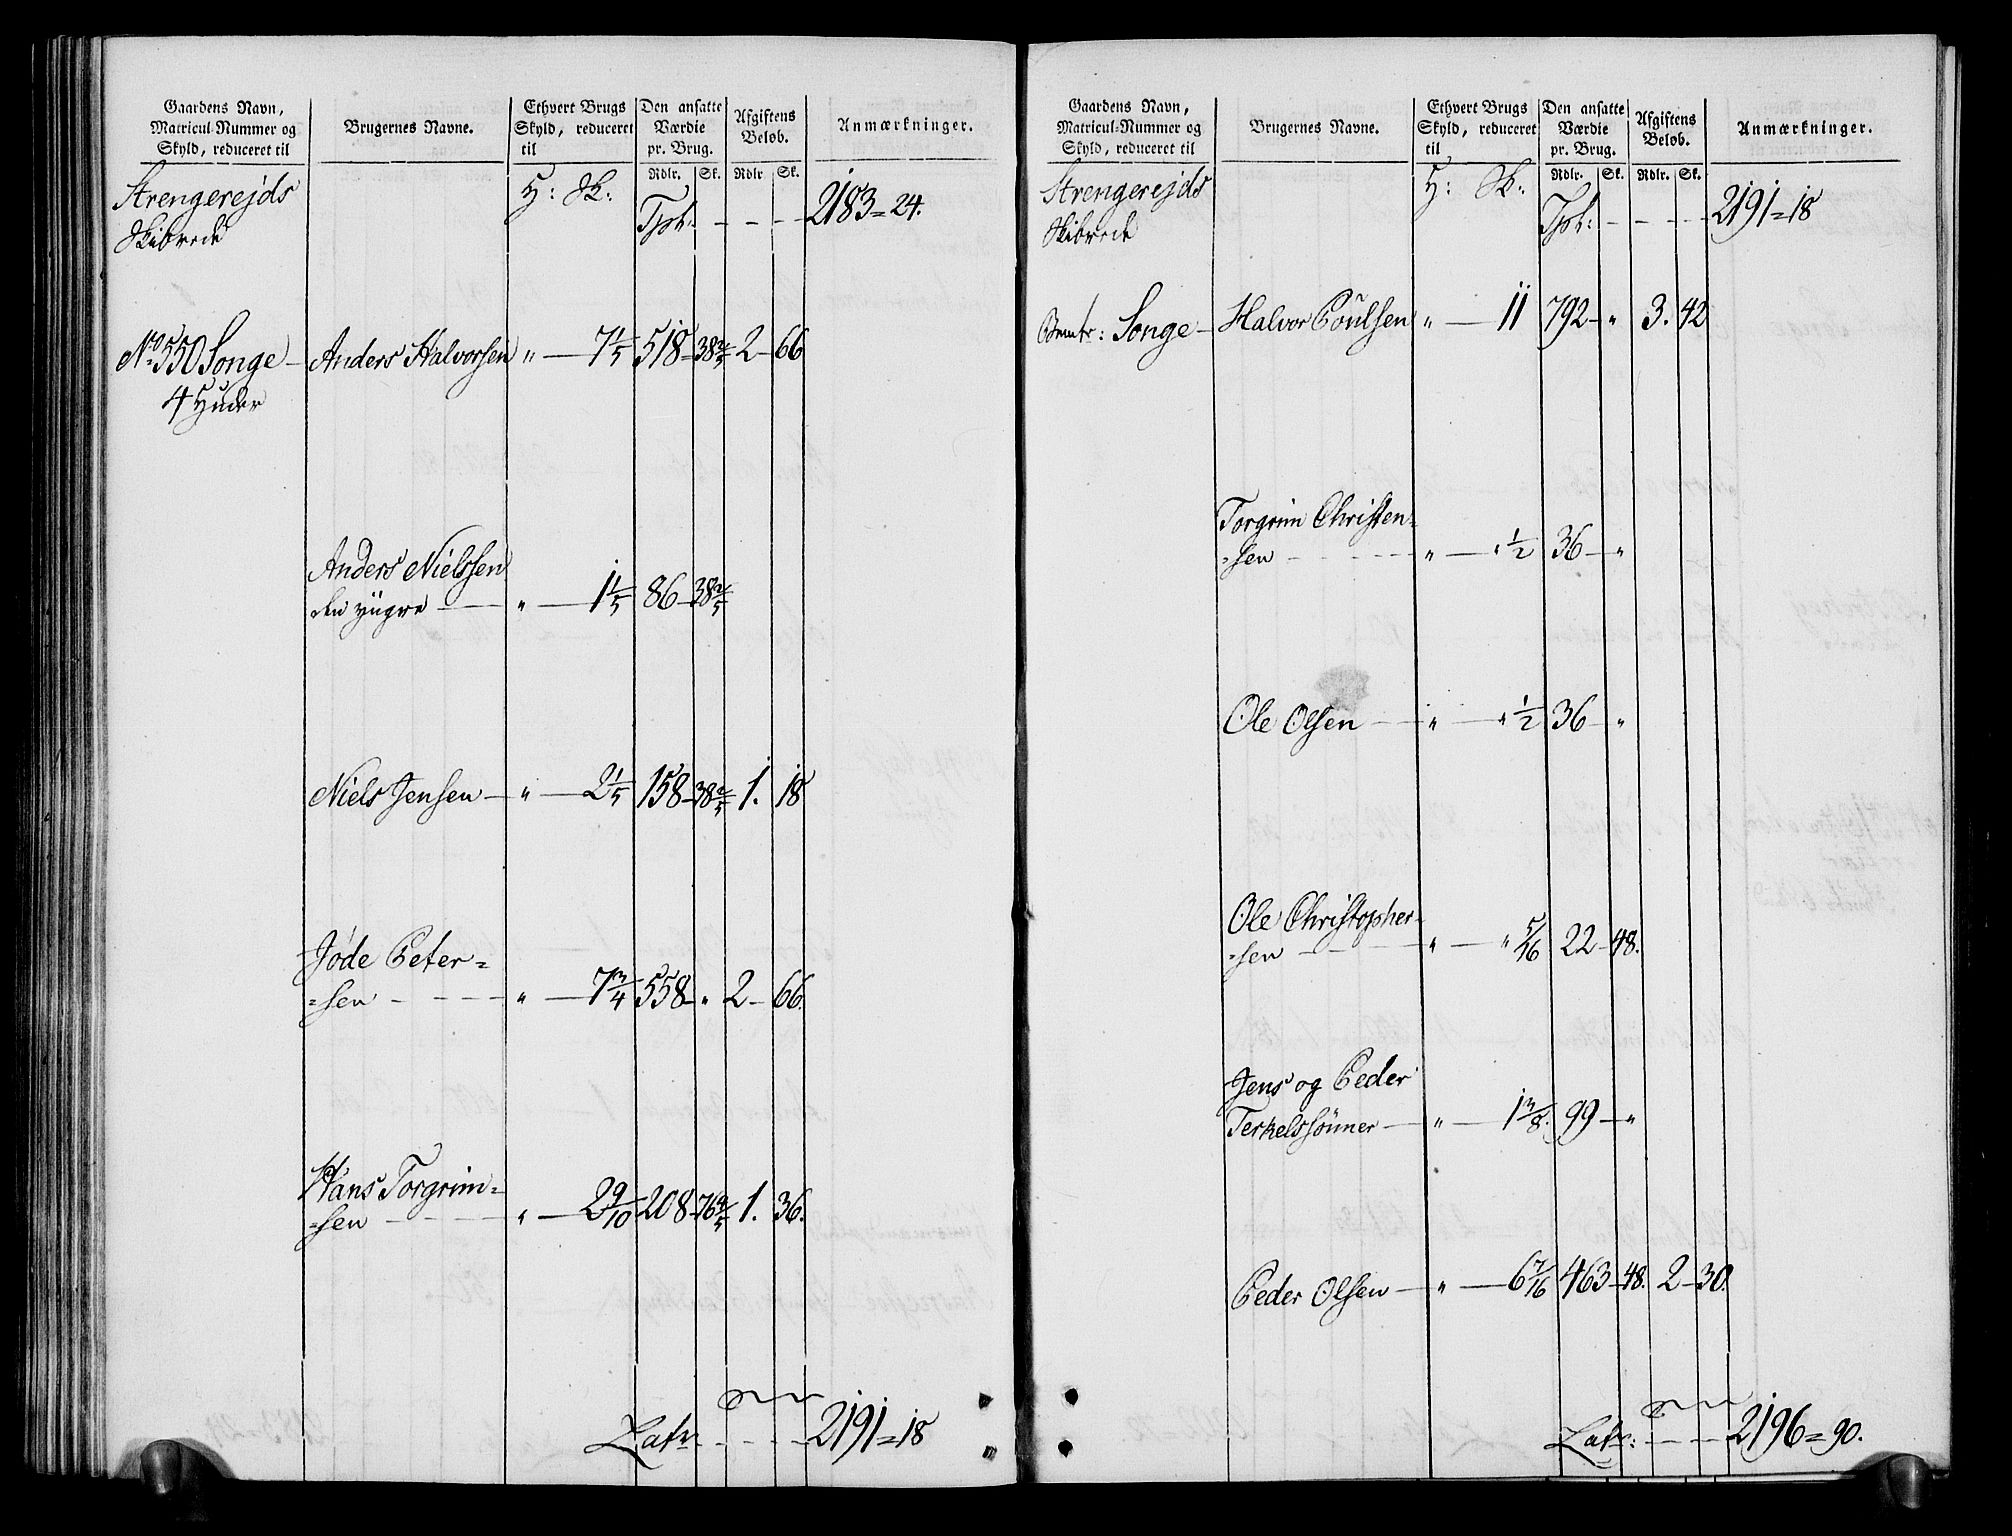 Gaardens Navn, Matricul-Nummer og Skyld, reduceret til | Brugernes Navne. | Ethvert Brugs Skyld, reduceret til | Den ansatte Værdie pr. Brug. | Afgiftens Beløb. | Anmærkninger.
Rdlr. | Sk. | Rdlr | Sk.
Strengerejds H: Sk:
Skibrede Tpt: - - - 2183 = 24.
No 550 Songe - Anders Halvorsen " - 7 1/5 518 - 38 2/5 2 - 66
4 Huder
Anders Nielssen
den yngre - " - 1 1/5 86 - 38 2/5
Niels Jensen - " - 2 1/5 158 - 38 2/5 1. 18
Jøde Peter=
=sen - - - " - 7 3/4 558 - " 2 - 66.
Hans Torgrim=
=sen - - - " - 2 9/10 208 - 76 4/5 1. 36.
Latr: - - - 2191 = 18
Gaardens Navn, Matricul-Nummer og Skyld, reduceret til | Brugernes Navne. | Ethvert Brugs Skyld, reduceret til | Den ansatte Værdie pr. Brug. | Afgiftens Beløb. | Anmærkninger.
Rdlr. | Sk. | Rdlr. | Sk.
Strengerejds H: Sk:
Skibrede Tpt: - - - 2191 = 18
Songe - Halvor Poulsen " - 11 792 - " 3. 42
Torgrim Christen=
=sen - - - " - " 1/2 36 - "
Ole Olsen - " - " 1/2 36 - "
Ole Christopher=
=sen - - - " - " 5/16 22 - 48.
Jens og Peder
Terkelssønner - " - 1 3/8. 99 - "
Peder Olsen - " - 6 7/16 463 - 48. 2 - 30.
Latr: - - - 2196 = 90.